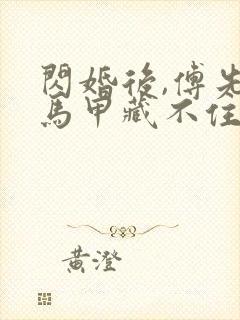 閃婚後,傅先
馬甲藏不住
黃澄